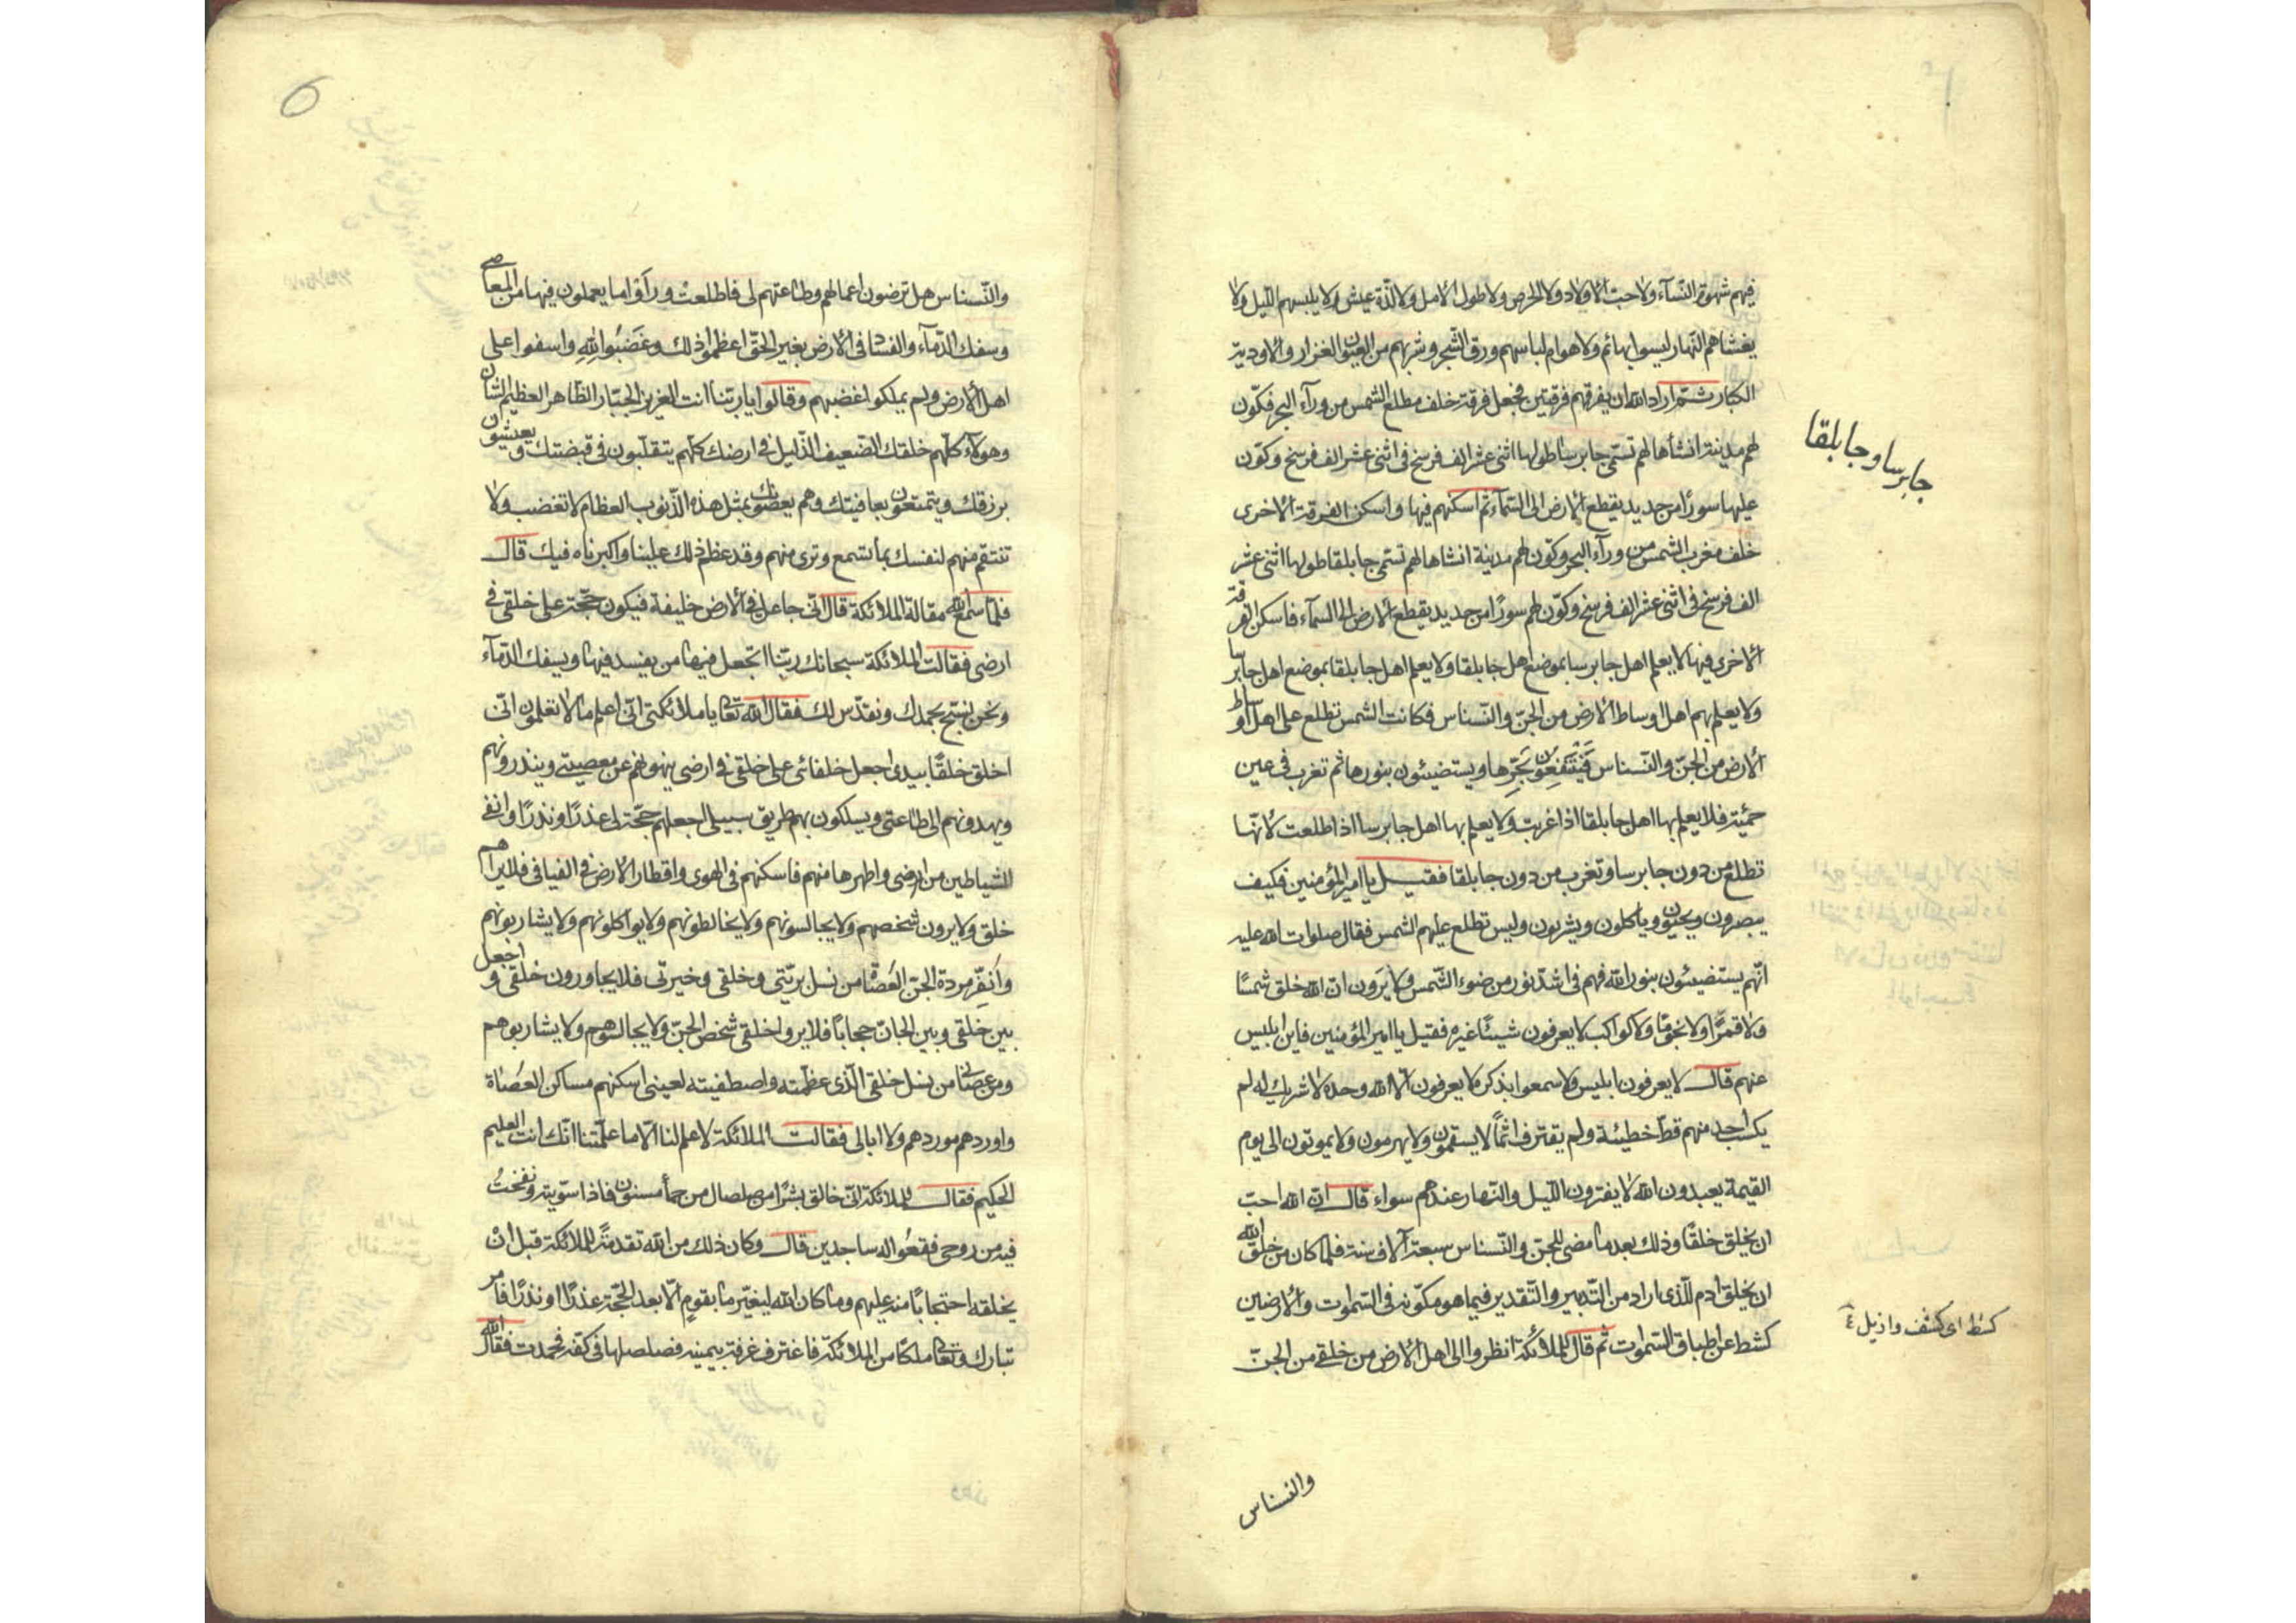 فيهم شهوة النّسآء ولا حبّ الاولاد ولا الحرص ولا طول الامل ولا لذّة عيش ولا يلبسهم اللّيل ولا
يغشاهم النّهار ليسوا بهائم ولا هوام لباسهم ورق الشّجر وشربهم من العيون الغزار والاودية
الكبار ثمّ اراد الله ان يفرقهم فرقتين فجعل فرقة خلف مطلع الشمس من ورآء البحر فكوّن
لهم مدينة انشأها لهم تسمّى جابرسا طولها اثنى عشر الف فرسخ فى اثنى عشر الف فرسخ وكوّن
عليها سورًا من حديد يقطع الارض الى السّمآء ثم اسكنهم فيها واسكن الفرقة الاخرى
خلف مغرب الشمس من ورآء البحر وكوّن لهم مدينة انشاها لهم تسمّى جابلقا طولها اثنى عشر
الف فرسخ فى اثنى عشر الف فرسخ وكوّن لهم سورًا من حديد يقطع الارض الى السمآء فاسكن الفرقة
الاخرى فيها لا يعلم اهل جابرسا بموضع اهل جابلقا ولا يعلم اهل جابلقا بموضع اهل جابرسا
ولا يعلم بهم اهل اوساط الارض من الجنّ والنّسناس فكانت الشمس تطلع على اهل اوساط
الارض من الجنّ والنّسناس فَيَنْتَفِعُونَ بَحَرِّها ويستضيئون بنورها ثم تغرب فى عين
حمئة فلا يعلم بها اهل جابلقا اذا غربت ولا يعلم بها اهل جابرسا اذا طلعت لانّها
تطلع من دون جابرسا وتغرب من دون جابلقا فقيل يا امير المؤمنين فكيف
يبصرون ويحيون ويأكلون ويشربون وليس تطلع عليهم الشمس فقال صلوات الله عليه
انّهم يستضيئون بنور الله فهم فى اشدّ نور من ضوء الشّمس ولا يَرَون انّ الله خلق شمسًا
ولا قمرًا ولا نجومًا ولا كواكب لا يعرفون شيئًا غيره فقيل يا امير المؤمنين فاين ابليس
عنهم قال لا يعرفون ابليس ولا سمعوا بذكره لا يعرفون الّا الله وحده لا شريك له لم
يكسب احد منهم قطّ خطيئة ولم يقترف اثماً لا يسقمون ولا يهرمون ولا يموتون الى يوم
القيمة يعبدون الله لا يفترون اللّيل والنّهار عندهم سواء قال انّ الله احبّ
ان يخلق خلقًا وذلك بعد ما مضى للجنّ والنّسناس سبعة آلاف سنة فلمّا كان من خلق الله
ان يخلق ادم للّذى اراد من التّدبير والتّقدير فيما هو مكوّنه فى السّموات والارضين
كشط عن اطباق السّموات ثم قال للملائكة انظروا الى اهل الارض من خلقى من الجنّ
جابرسا وجابلقا
كشط اى كشف وازيل
والنسناس
6
والنّسناس هل ترضون اعمالهم وطاعتهم لى فاطلعت وراوا ما يعملون فيها من المعاصى
وسفك الدّمآء والفساد فى الارض بغير الحقّ اعظموا ذلك وغَضَبُوا لِلّهِ واسفوا على
اهل الارض ولم يملكوا غضبهم وقالوا يا ربّنا انت العزيز الجبّار الظّاهر العظيم الشّان
وهولآء كلّهم خلقك الضّعيف الذّليل فى ارضك كلّهم يتقلّبون فى قبضتك ويعيشون
برزقك ويتمتعون بعافيتك وهم يعصونك بمثل هذه الذّنوب العظام لا تغضب ولا
تنتقم منهم لنفسك بما تسمع وترى منهم وقد عظم ذلك علينا واكبرناه فيك قال
فلمّا سمع الله مقالة الملائكة قال انّى جاعل فى الارض خليفة فيكون حجّة على خلقى فى
ارضى فقالت الملائكة سبحانك ربّنا اتجعل فيها من يفسد فيها ويسفك الدّمآء
ونحن نسبّح بحمدك ونقدّس لك فقال الله تعالى يا ملائكتى انّى اعلم ما لا تعلمون انّى
اخلق خلقًا بيدى اجعل خلفائى على خلقى فى ارضى ينهونهم عن معصيتى وينذرونهم
ويهدونهم الى طاعتى ويسلكون بهم طريق سبيلى اجعلهم حجّة لى عذرًا ونذرًا وانفى
الشياطين من ارضى واطهرها منهم فاسكنهم فى الهوى واقطار الارض فى الفيافى فلا يراهم
خلق ولا يرون شخصهم ولا يجالسونهم ولا يخالطونهم ولا يواكلونهم ولا يشاربونهم
وانفّر مردة الجنّ العُصاة من نسل بريّتى وخلقى وخيرتى فلا يجاورون خلقى واجعل
بين خلقى وبين الجانّ حجابًا فلا يروا خلقى شخص الجنّ ولا يجالسوهم ولا يشاربوهم
ومن عصانى من نسل خلقى الّذى عظّمته واصطفيته لعينى اسكنهم مساكن العُصاة
واوردهم موردهم ولا ابالى فقالت الملائكة لا علم لنا الّا ما علّمتنا انّك انت العليم
الحكيم فقال للملائكة انّى خالق بشرًا من صلصال من حمأ مسنون فاذا سوّيته ونفختُ
فيه من روحى فقعُوا له ساجدين قال وكان ذلك من الله تقدمةً للملائكة قبل انْ
يخلقه احتجابًا منه عليهم وما كان الله ليغيّر ما بقومٍ الّا بعد الحجّة عذرًا او نذرًا فامر
تبارك وتعالى ملكًا من الملائكة فاغترف غرفة بيمينه فصلصلها فى كفّه فجمدت فقال الله